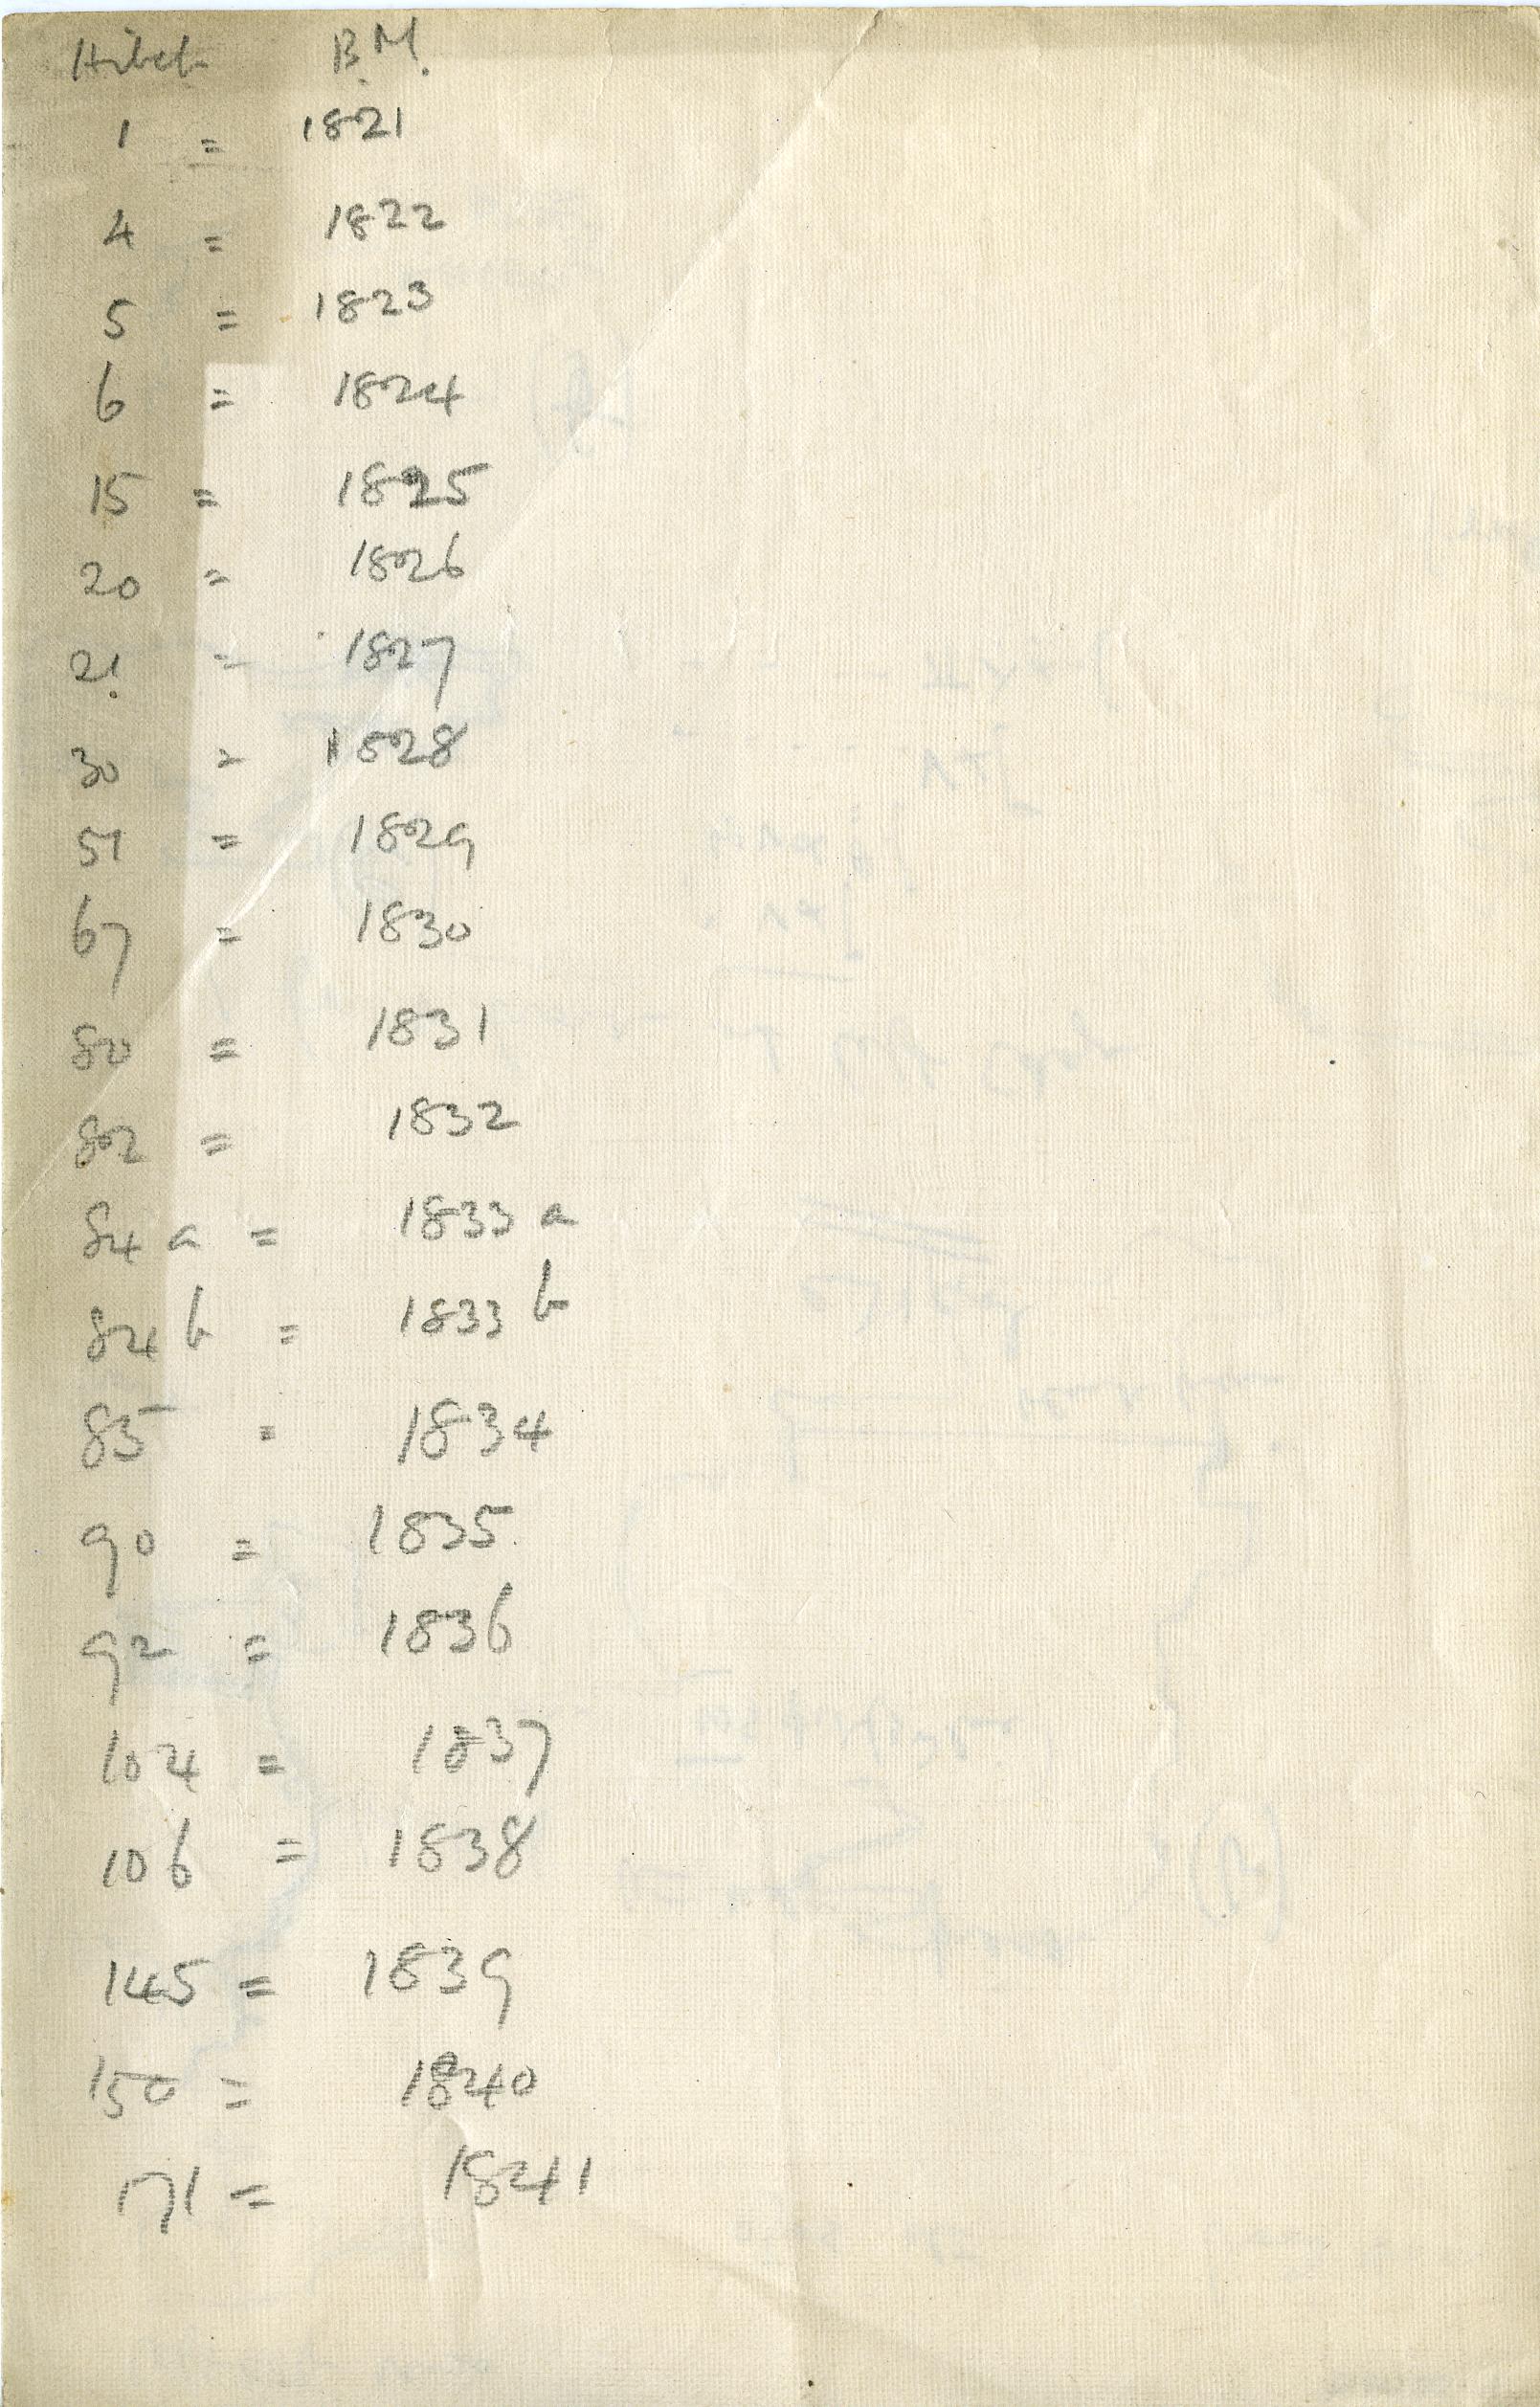 Hibeh B.M.
1 = 1821
4 = 1822
5 = 1823
6 = 1824
15 = 1825
20 = 1826
21 = 1827
30 = 1828
51 = 1829
67 = 1830
80 = 1831
82 = 1832
84 a = 1833 a
84 b = 1833 b
85 = 1834
90 = 1835
92 = 1836
104 = 1837
106 = 1838
145 = 1839
150 = 1840
171 = 1841